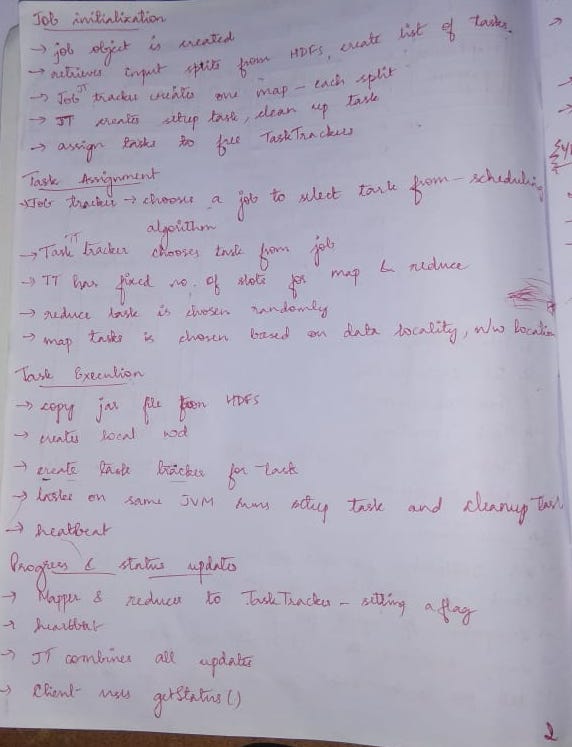 Job initialization
→ job object is created
→ retrieves input splits from HDFS, create list of tasks.
→ Job tracker creates one map - each split
JT
→ JT creates setup task, clean up task
→ assign tasks to free TaskTrackers
Task Assignment
→ Job tracker → chooses a job to select task from - scheduling
algorithm
TT
→ Task tracker chooses task from job
→ TT has fixed no. of slots for map & reduce
→ reduce task is chosen randomly
→ map tasks is chosen based on data locality, n/w location
Task Execution
→ copy jar file from HDFS
→ creates local wd
→ create task tracker for task
→ tasks on same JVM runs setup task and cleanup task
→ heatbeat
Progress & status updates
→ Mapper & reducer to TaskTracker - setting a flag
→ heartbeat
→ JT combines all updates
→ Client uses getStatus()
2